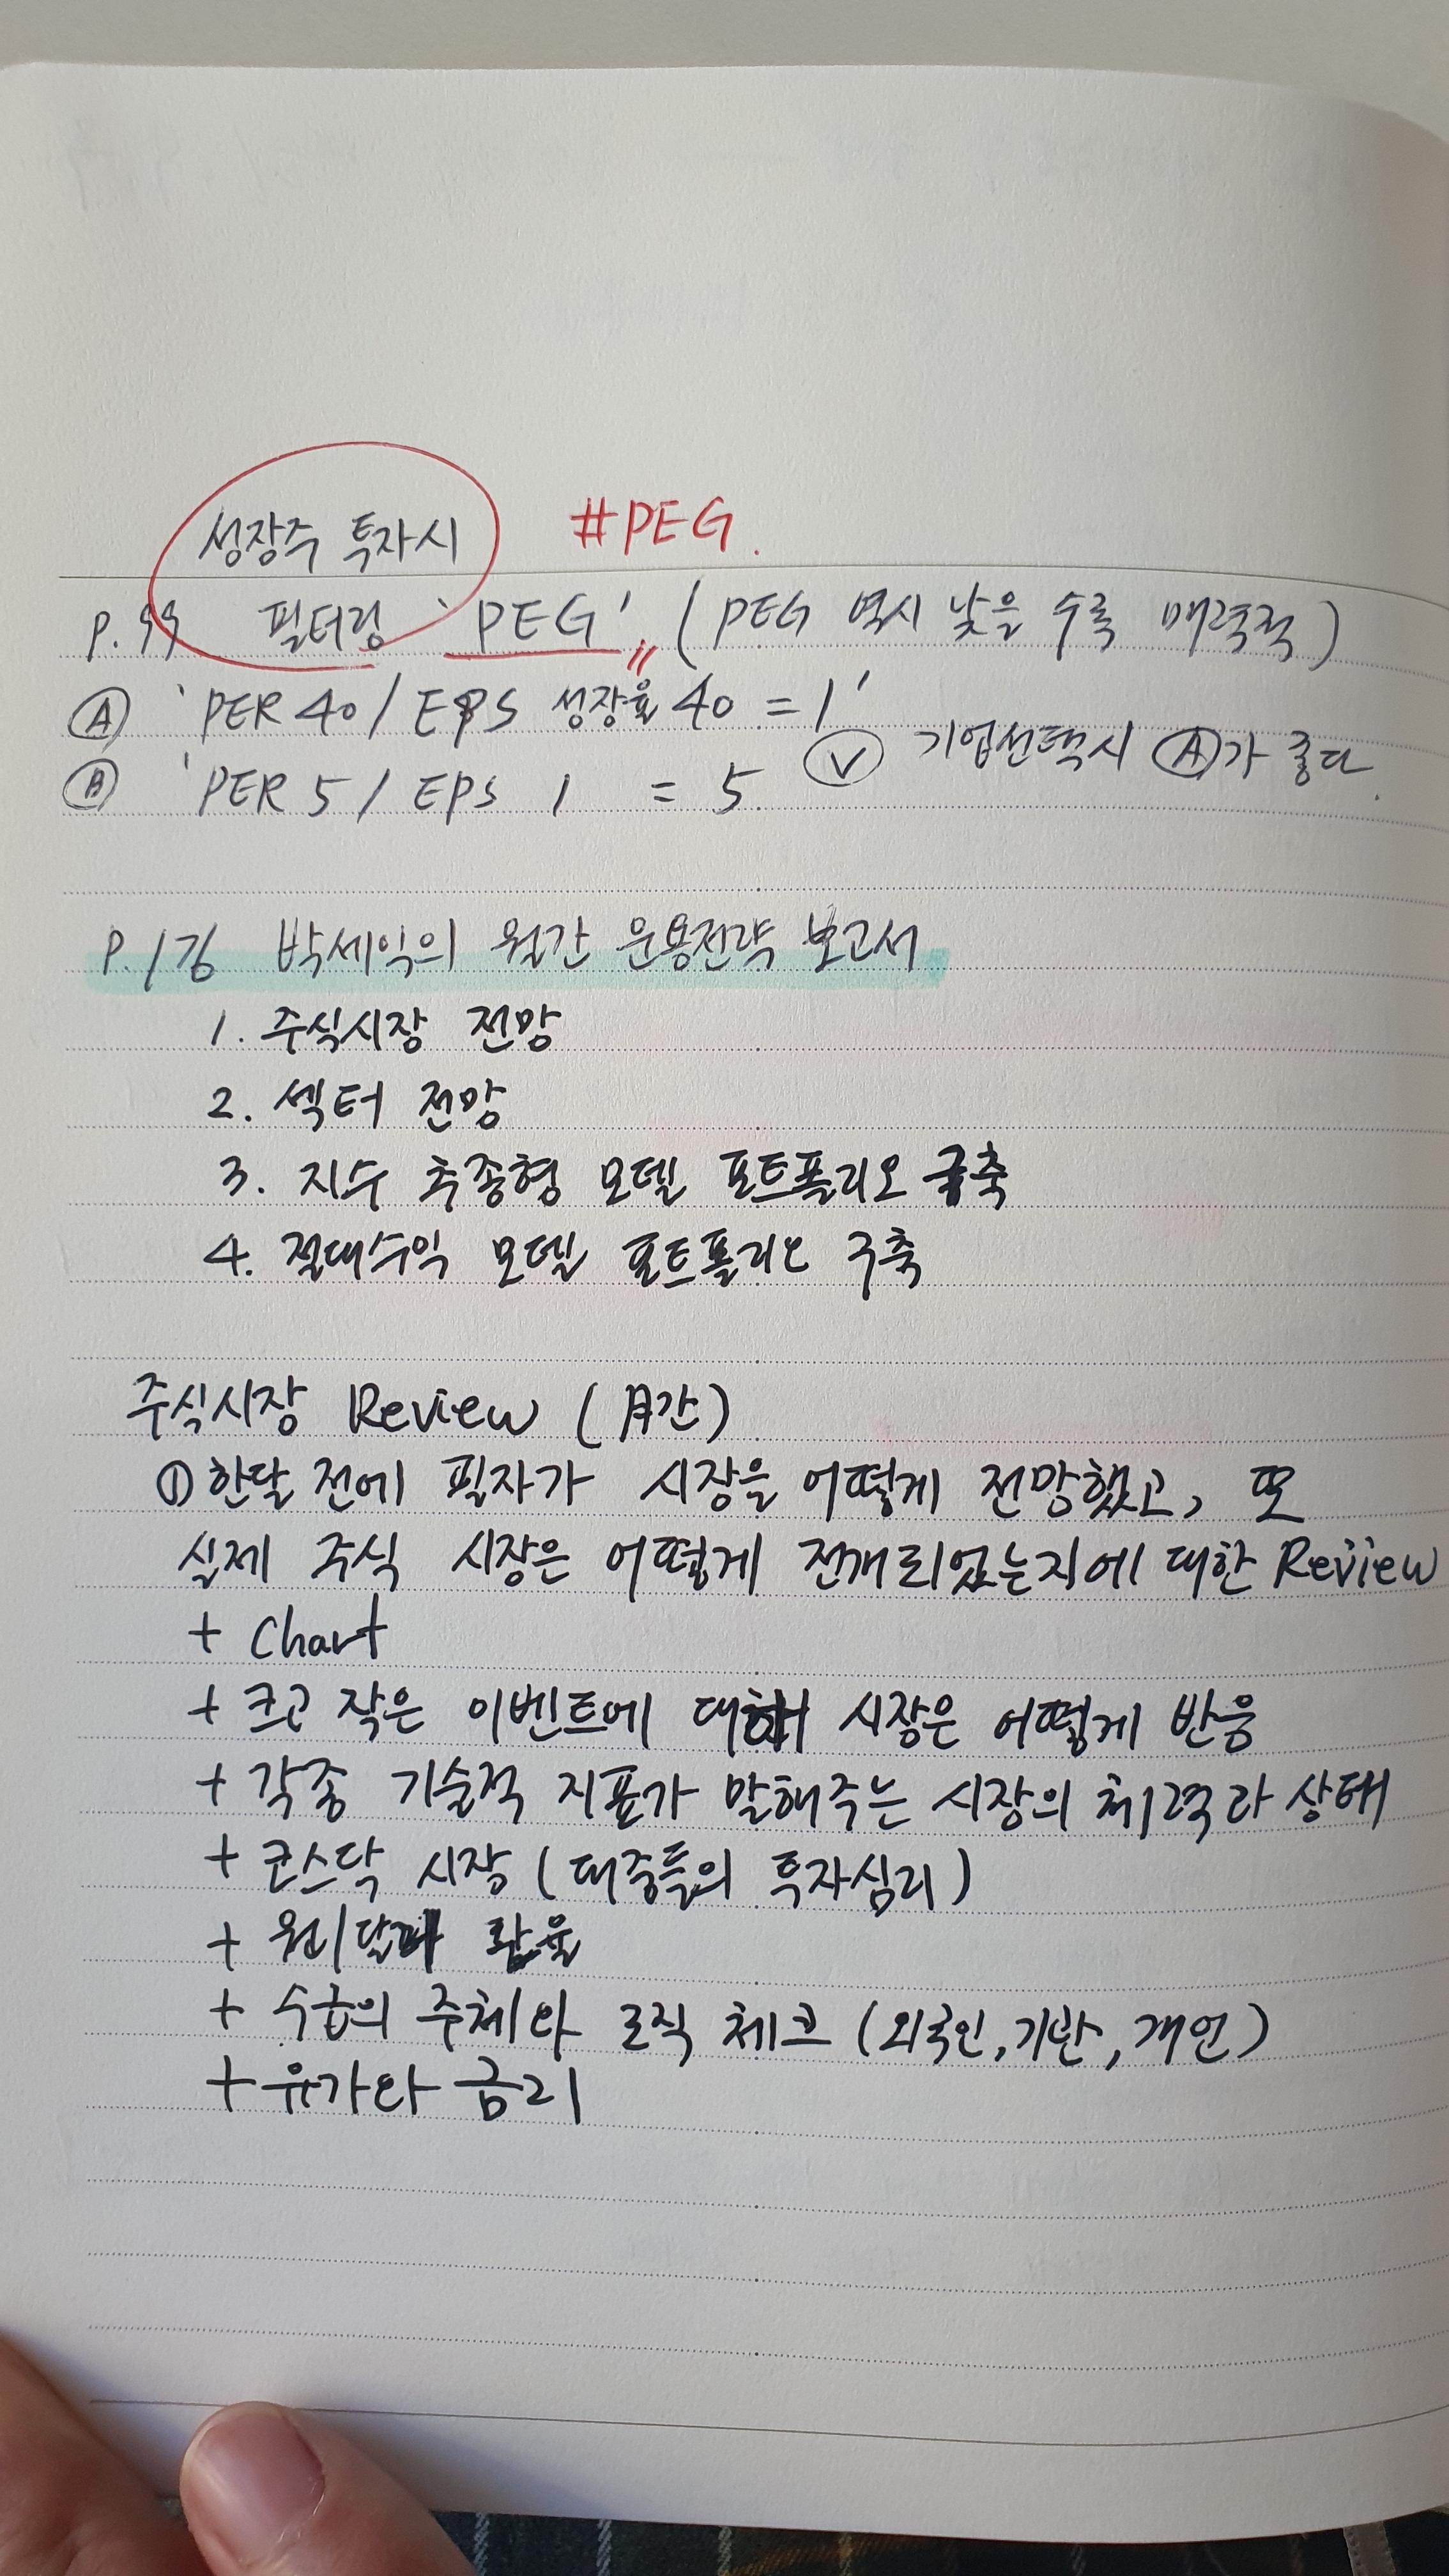 성장주 투자시 #PEG.
P.99 필터링 'PEG' (PEG 역시 낮을 수록 매력적)
Ⓐ 'PER 40 / EPS 성장율 40 = 1'
Ⓥ 기업선택시 Ⓐ가 좋다.
Ⓑ 'PER 5 / EPS 1 = 5
박세익의 월간 운용전략 보고서
1. 주식시장 전망
2. 섹터 전망
3. 지수 추종형 모델 포트폴리오 구축
4. 절대수익 모델 포트폴리오 구축
주식시장 Review (月간)
① 한달 전에 필자가 시장을 어떻게 전망했고, 또
실제 주식 시장은 어떻게 전개되었는지에 대한 Review
+ Chart
+ 크고 작은 이벤트에 대해 시장은 어떻게 반응
+ 각종 기술적 지표가 말해주는 시장의 체력과 상태
+ 코스닥 시장 (대중들의 투자심리)
+ 원/달러 환율
+ 수급의 주체와 로직 체크 (외국인, 기관, 개인)
+ 유가와 금리